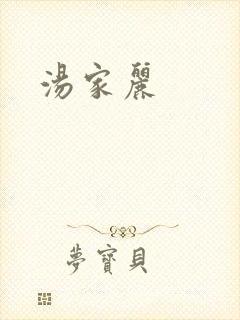 湯家麗
夢寶貝